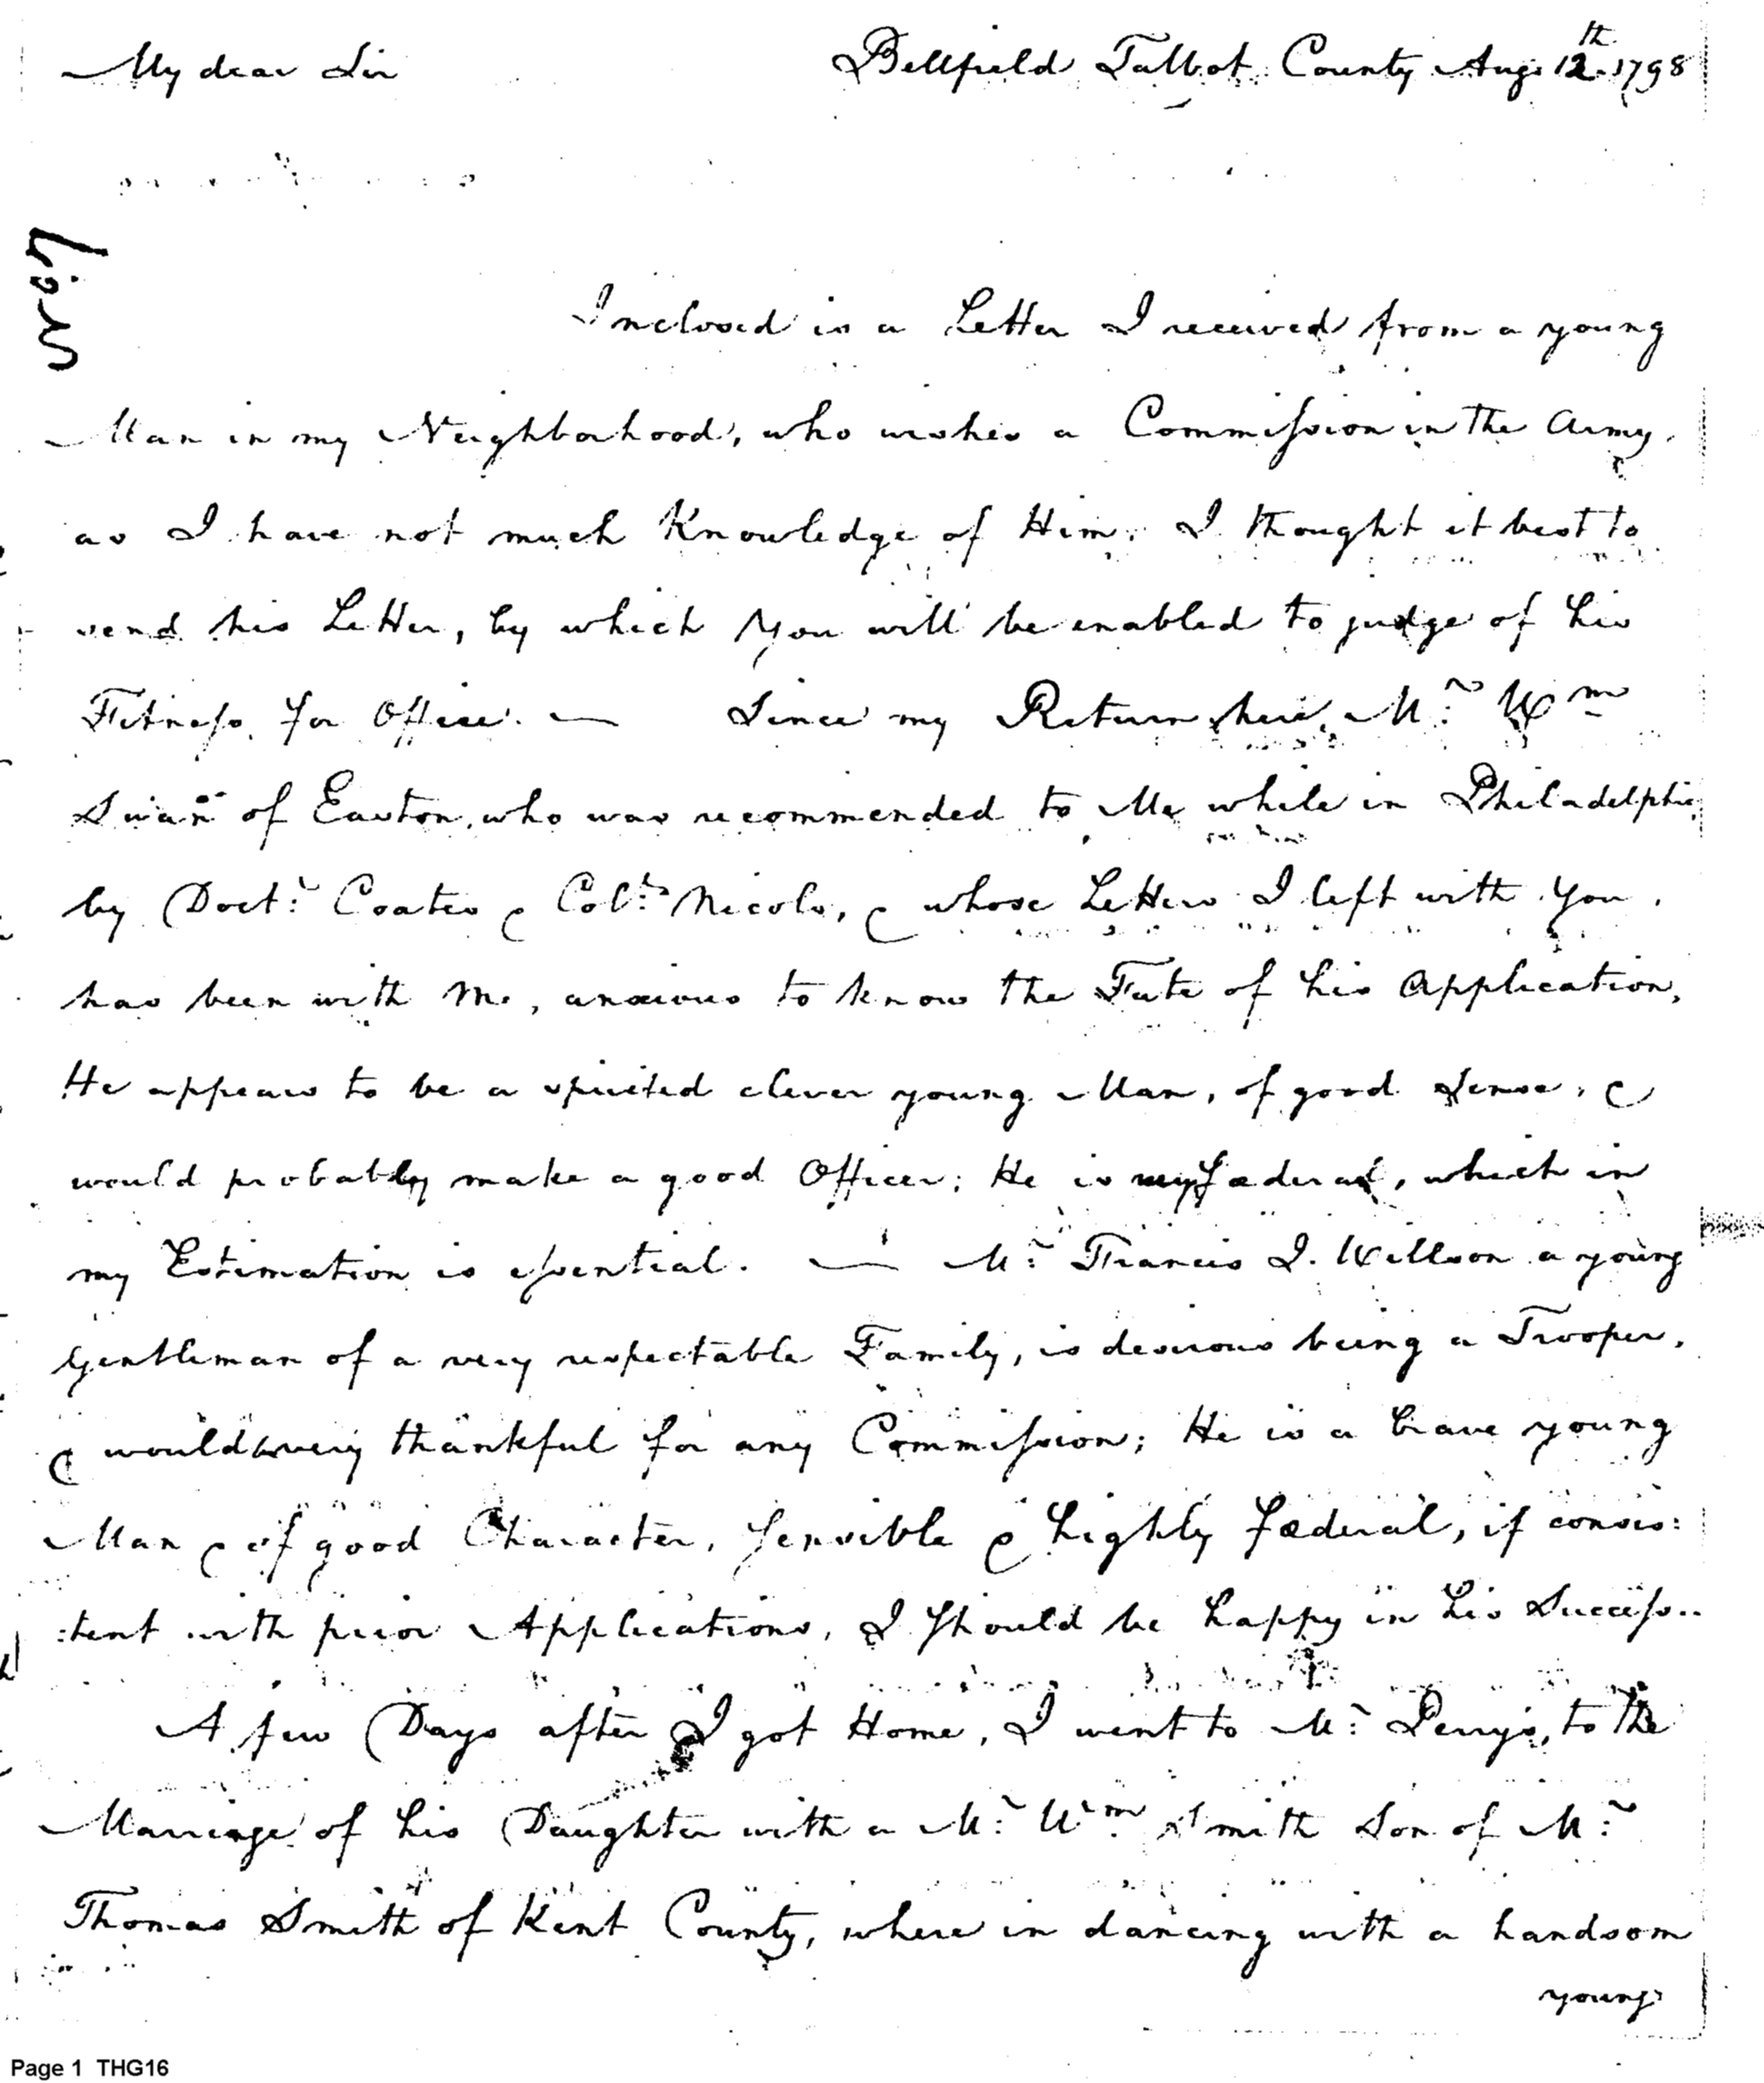 My dear Sir
Bellfield Talbot County Aug: 12th 1798
Inclosed is a Letter I received from a young
Man in my Neighborhood, who wishes a Commission in the Army,
as I have not much Knowledge of Him, I thought it best to
send his Letter, by which You will be enabled to judge of his
Fitness for Office. — Since my Return here, Mr: Wm
Swan of Easton, who was recommended to Me while in Philadelphia,
by Doctr: Coates & Colo: Nicols, & whose Letters I left with You,
has been with Me, anxious to know the Fate of his Application,
He appears to be a spirited clever young Man, of good Sense, &
would probably make a good Officer; He is very fœderal, which in
my Estimation is essential. — Mr: Francis I. Willson a young
Gentleman of a very respectable Family, is desirous being a Trooper,
& would be very thankful for any Commission; He is a brave young
Man & of good Character, sensible & highly fœderal, if consis:
:tent with prior Applications, I should be happy in his Success..
A few Days after I got Home, I went to Mr: Perry's, to the
Marriage of his Daughter with a Mr: Wm: Smith Son of Mr:
Thomas Smith of Kent County, where in dancing with a handsom
young
Page 1 THG16